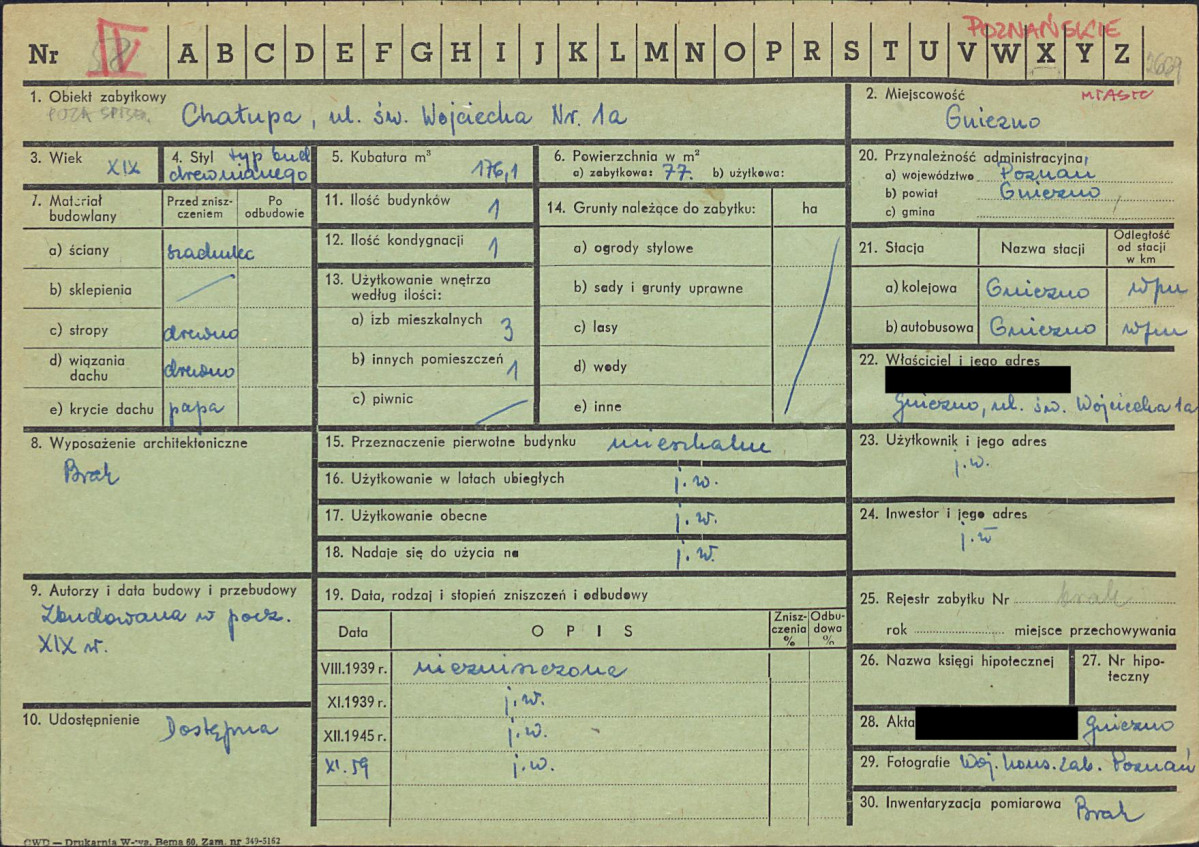 POZNAŃSKIE
Nr IV 58 A B C D E F G H I J K L M N O P R S T U V W X Y Z 3609
1. Obiekt zabytkowy
POZA SPISEM.
Chałupa, ul. św. Wojciecha Nr. 1a
2. Miejscowość MIASTO
Gniezno
3. Wiek
XIX
4. Styl typ bud
drewnianego
5. Kubatura m³
176,1
6. Powierzchnia w m²
a) zabytkowa: 77. b) użytkowa:
20. Przynależność administracyjna
a) województwo Poznań
b) powiat Gniezno
c) gmina
7. Materiał budowlany
Przed zniszczeniem
Po odbudowie
a) ściany szachulec
b) sklepienia /
c) stropy drewno
d) wiązania dachu drewno
e) krycie dachu papa
11. Ilość budynków 1
12. Ilość kondygnacji 1
13. Użytkowanie wnętrza
według ilości:
a) izb mieszkalnych 3
b) innych pomieszczeń 1
c) piwnic /
14. Grunty należące do zabytku: ha
a) ogrody stylowe
b) sady i grunty uprawne
c) lasy
d) wody
e) inne
21. Stacja Nazwa stacji Odległość od stacji w km
a) kolejowa Gniezno w/m
b) autobusowa Gniezno w/m
22. Właściciel i jego adres
Gniezno, ul. św. Wojciecha 1a
8. Wyposażenie architektoniczne
Brak
15. Przeznaczenie pierwotne budynku mieszkalne
16. Użytkowanie w latach ubiegłych j.w.
17. Użytkowanie obecne j.w.
18. Nadaje się do użycia na j.w.
23. Użytkownik i jego adres
j.w.
24. Inwestor i jego adres
j.w
9. Autorzy i data budowy i przebudowy
Zbudowana w pocz.
XIX w.
10. Udostępnienie
Dostępna
19. Data, rodzaj i stopień zniszczeń i odbudowy
Data OPIS Zniszczenia % Odbudowa %
VIII.1939 r. niezniszczona
XI.1939 r. j.w.
XII.1945 r. j.w.
XI.59 j.w.
25. Rejestr zabytku Nr brak
rok miejsce przechowywania
26. Nazwa księgi hipotecznej
27. Nr hipoteczny
28. Akta Gniezno
29. Fotografie Woj. kons. zab. Poznań
30. Inwentaryzacja pomiarowa Brak
CWD — Drukarnia W-wa, Bema 60, Zam. nr 349-5162